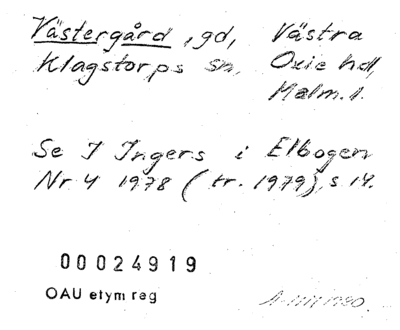 Västergård, gd, Västra
Klagstorps sn, Oxie hd,
Malm. l.
Se I Ingers i Elbogen
Nr 4 1978 (tr. 1979), s 14.
00024919
OAU etym reg
1980